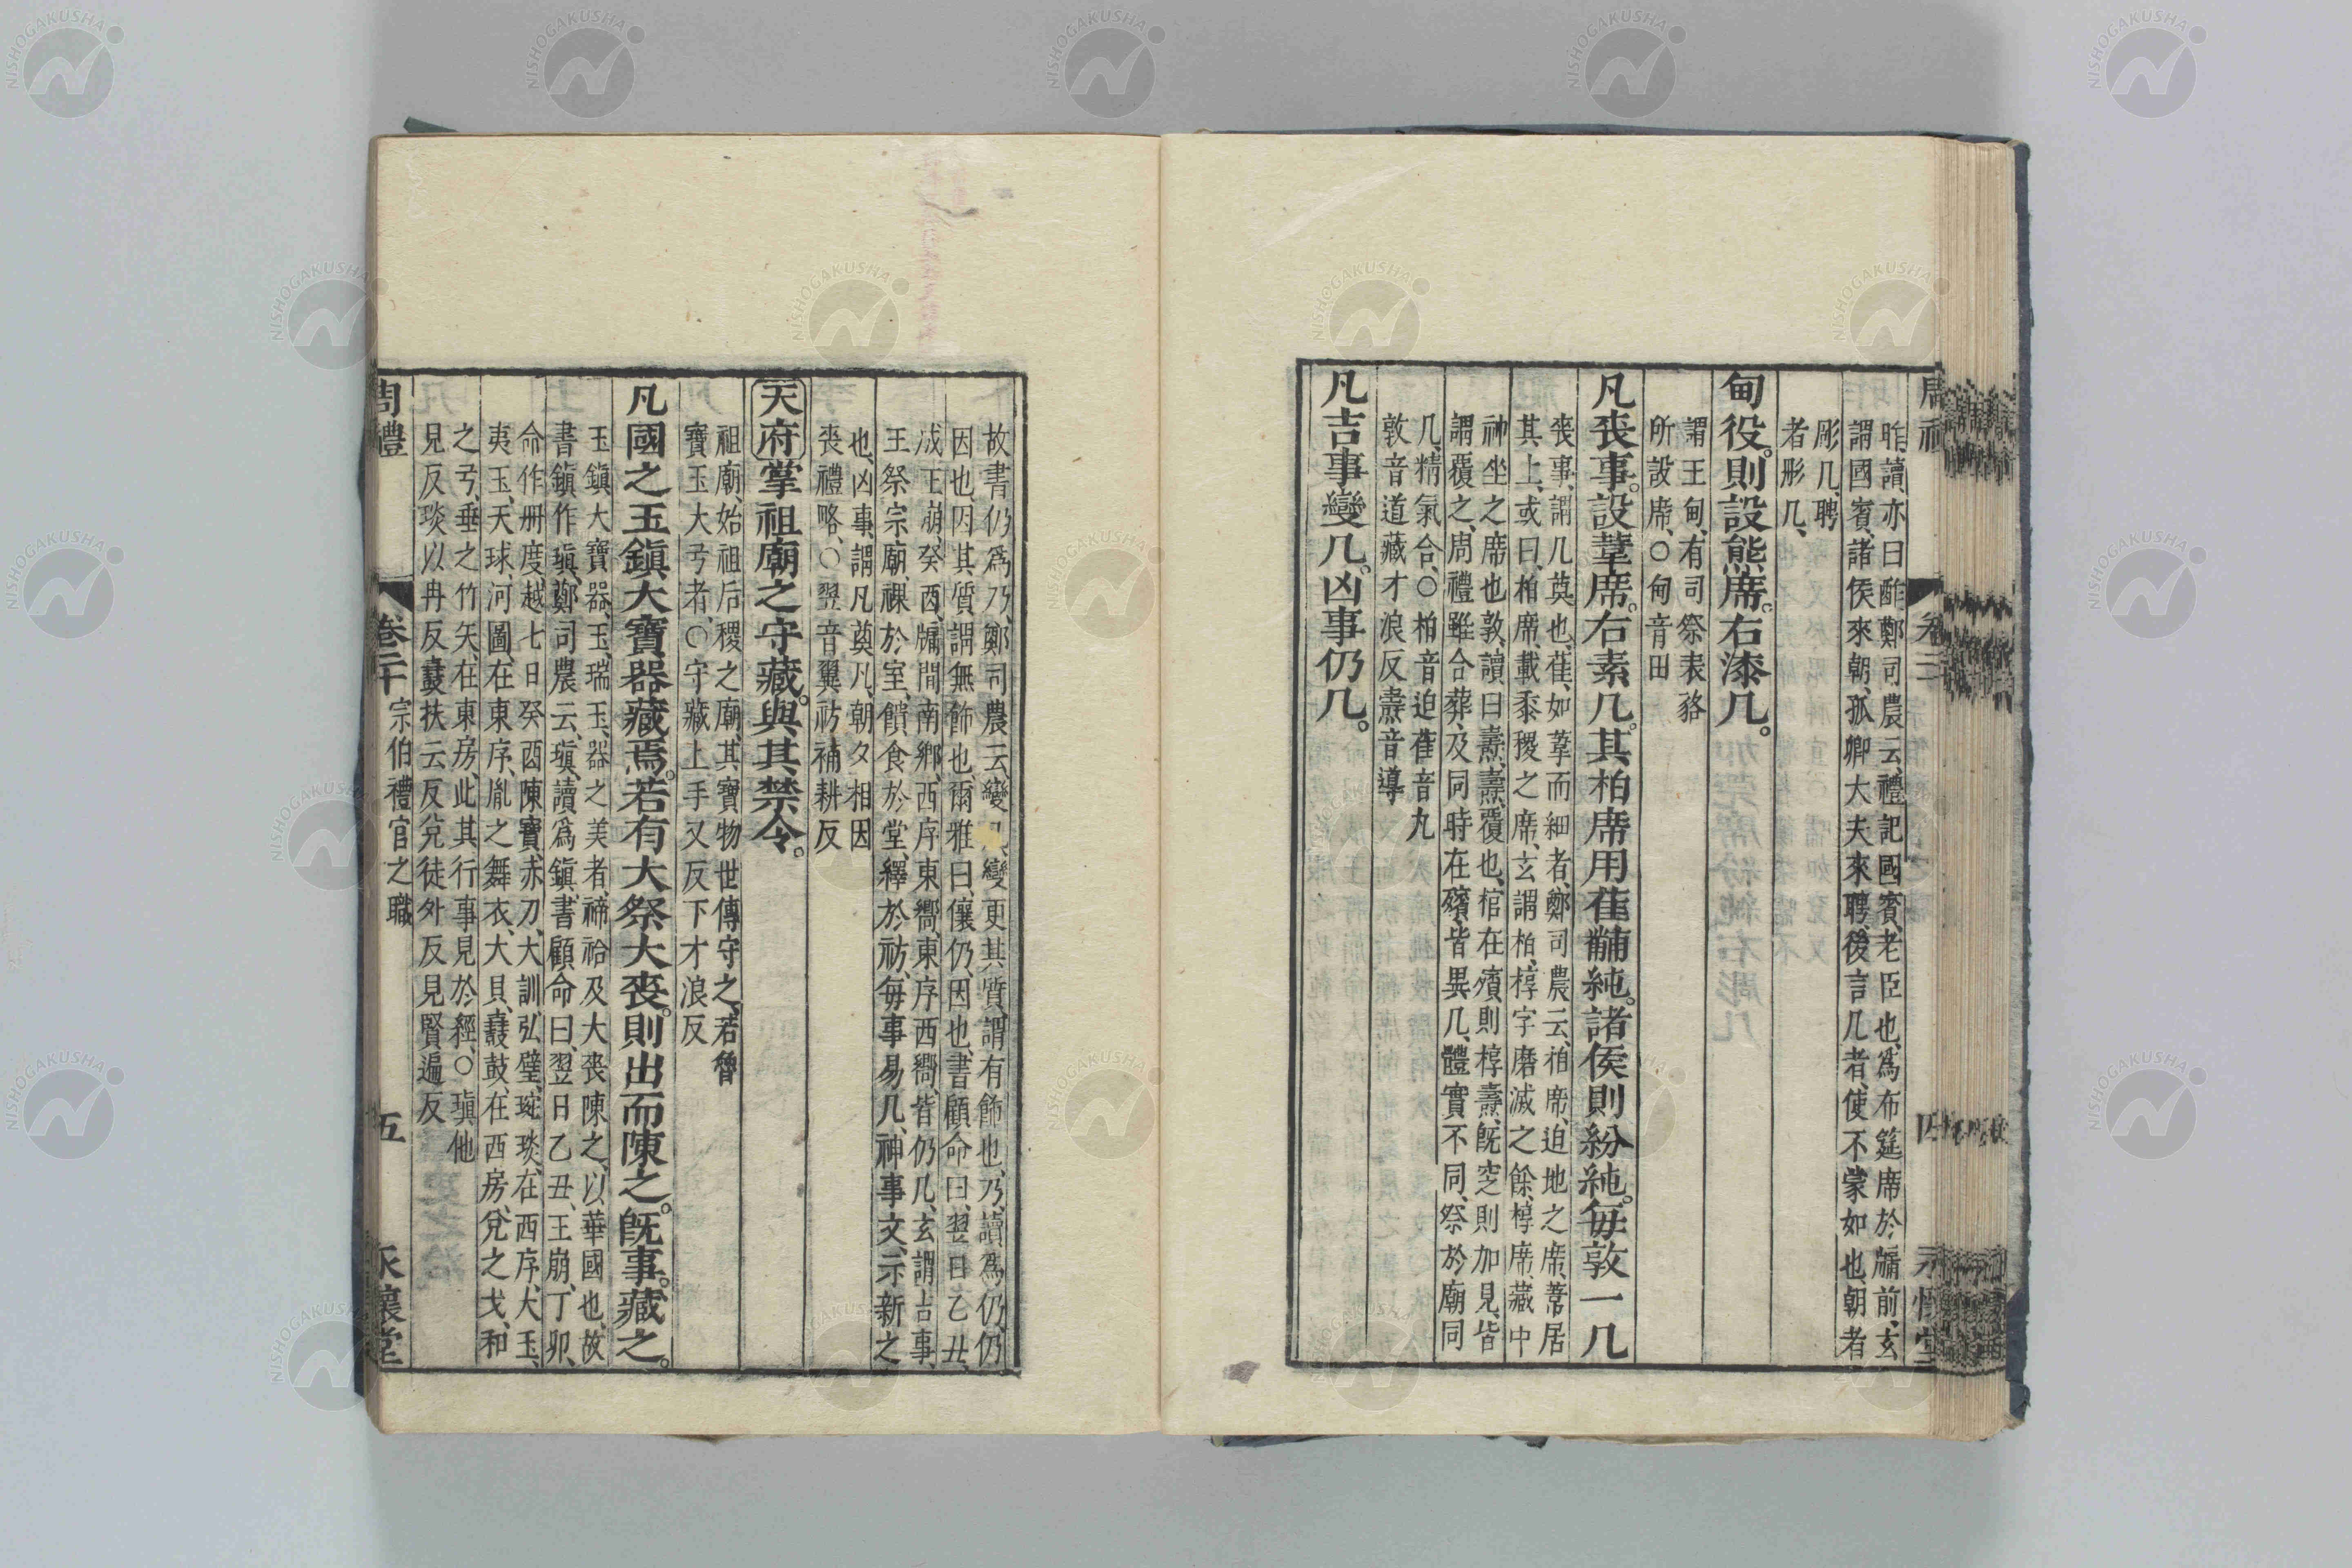 昨讀亦曰酢鄭司農云禮記國賓老臣也爲布筵席於牖前玄
謂國賓諸侯來朝孤卿大夫來聘後言几者使不蒙如也朝者
彤几聘
者彤几
甸役則設熊席右漆几
謂王甸有司祭表貉
所設席○甸音田
凡喪事設葦席右素几其柏席用萑黼純諸侯則紛純每敦一几
喪事謂凡奠也萑如葦而細者鄭司農云柏席迫地之席葦居
其上或曰柏席載黍稷之席玄謂柏椁字磨滅之餘椁席藏中
神坐之席也敦讀曰燾燾覆也棺在殯則椁燾旣窆則加見皆
謂覆之周禮雖合葬及同時在殯皆異几體實不同祭於廟同
几精氣合○柏音迫萑音丸
敦音道藏才浪反燾音導
凡吉事變几凶事仍几
故書仍爲乃鄭司農云變几變更其質謂有飾也乃讀爲仍仍
因也因其質謂無飾也爾雅曰儴仍因也書顧命曰翌日乙丑
成王崩癸酉牖間南嚮西序東嚮東序西嚮皆仍几玄謂吉事
王祭宗廟祼於室饋食於堂繹於祊每事易几神事文示新之
也凶事謂凡奠几朝夕相因
喪禮略○翌音翼祊補耕反
天府掌祖廟之守藏與其禁令
祖廟始祖后稷之廟其寶物世傳守之若魯
寶玉大弓者○守藏上手又反下才浪反
凡國之玉鎭大寶器藏焉若有大祭大喪則出而陳之旣事藏之
玉鎭大寶器玉瑞玉器之美者禘祫及大喪陳之以華國也故
書鎭作瑱鄭司農云瑱讀爲鎭書顧命曰翌日乙丑王崩丁卯
命作册度越七日癸酉陳寶赤刀大訓弘璧琬琰在西序大玉
夷玉天球河圖在東序胤之舞衣大貝鼖鼓在西房兌之戈和
之弓垂之竹矢在東房此其行事見於經○瑱他
見反琰以冉反鼖扶云反兌徒外反見賢遍反
周禮 卷二十 宗伯禮官之職 五 永懷堂